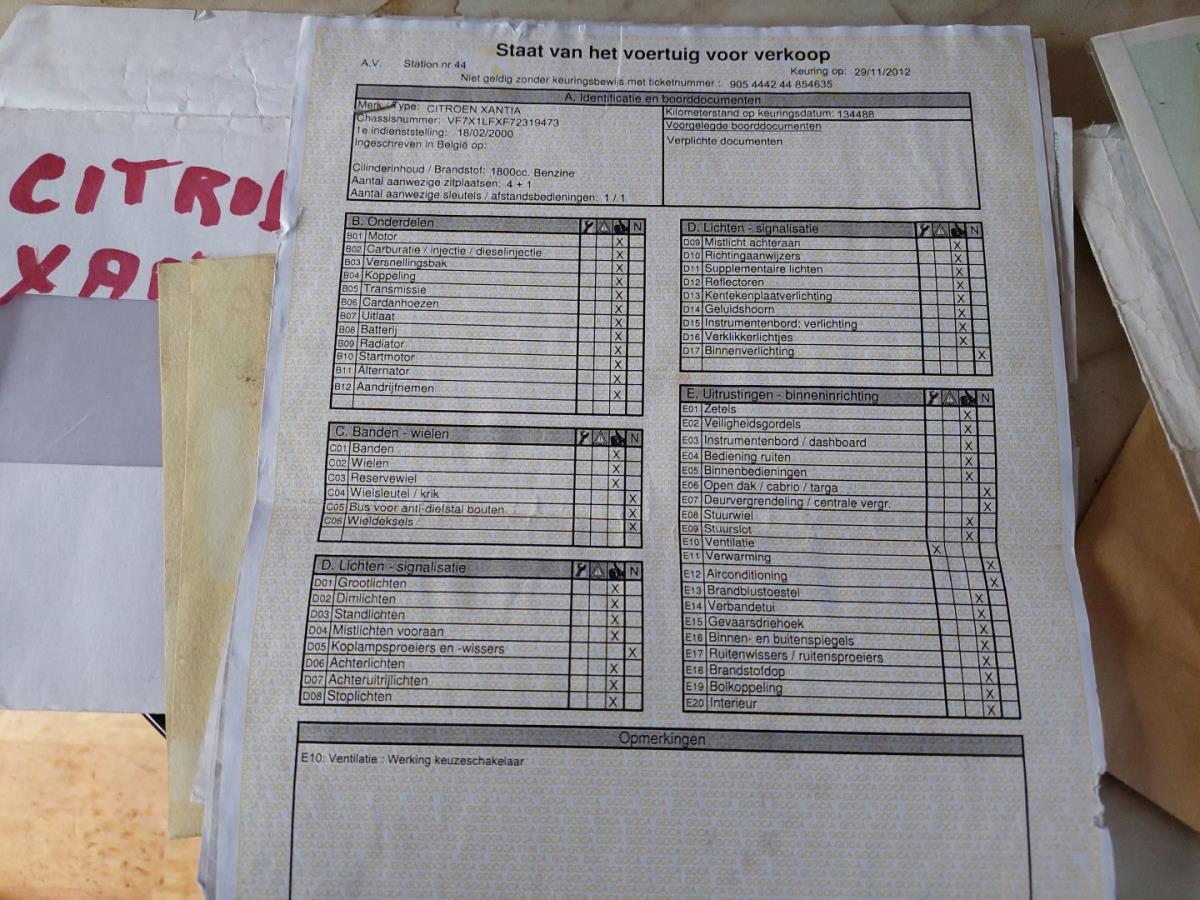 CITROE
XAN
Staat van het voertuig voor verkoop
A.V. Station nr 44 Keuring op: 29/11/2012
Niet geldig zonder keuringsbewijs met ticketnummer : 905 4442 44 854635
A. Identificatie en boorddocumenten
Merk / Type: CITROEN XANTIA
Chassisnummer: VF7X1LFXF72319473
1e indienststelling: 18/02/2000
Ingeschreven in België op:
Cilinderinhoud / Brandstof: 1800cc. Benzine
Aantal aanwezige zitplaatsen: 4 + 1
Aantal aanwezige sleutels / afstandsbedieningen: 1 / 1
Kilometerstand op keuringsdatum: 134488
Voorgelegde boorddocumenten
Verplichte documenten
B. Onderdelen N
B01 Motor X
B02 Carburatie / injectie / dieselinjectie X
B03 Versnellingsbak X
B04 Koppeling X
B05 Transmissie X
B06 Cardanhoezen X
B07 Uitlaat X
B08 Batterij X
B09 Radiator X
B10 Startmotor X
B11 Alternator X
B12 Aandrijfriemen X
C. Banden - wielen N
C01 Banden X
C02 Wielen X
C03 Reservewiel X
C04 Wielsleutel / krik X
C05 Bus voor anti-diefstal bouten X
C06 Wieldeksels X
D. Lichten - signalisatie N
D01 Grootlichten X
D02 Dimlichten X
D03 Standlichten X
D04 Mistlichten vooraan X
D05 Koplampsproeiers en -wissers X
D06 Achterlichten X
D07 Achteruitrijlichten X
D08 Stoplichten X
D. Lichten - signalisatie N
D09 Mistlicht achteraan X
D10 Richtingaanwijzers X
D11 Supplementaire lichten X
D12 Reflectoren X
D13 Kentekenplaatverlichting X
D14 Geluidshoorn X
D15 Instrumentenbord: verlichting X
D16 Verklikkerlichtjes X
D17 Binnenverlichting X
E. Uitrustingen - binneninrichting N
E01 Zetels X
E02 Veiligheidsgordels X
E03 Instrumentenbord / dashboard X
E04 Bediening ruiten X
E05 Binnenbedieningen X
E06 Open dak / cabrio / targa X
E07 Deurvergrendeling / centrale vergr. X
E08 Stuurwiel X
E09 Stuurslot X
E10 Ventilatie X
E11 Verwarming X
E12 Airconditioning X
E13 Brandblustoestel X
E14 Verbandetui X
E15 Gevaarsdriehoek X
E16 Binnen- en buitenspiegels X
E17 Ruitenwissers / ruitensproeiers X
E18 Brandstofdop X
E19 Bolkoppeling X
E20 Interieur X
Opmerkingen
E10: Ventilatie : Werking keuzeschakelaar